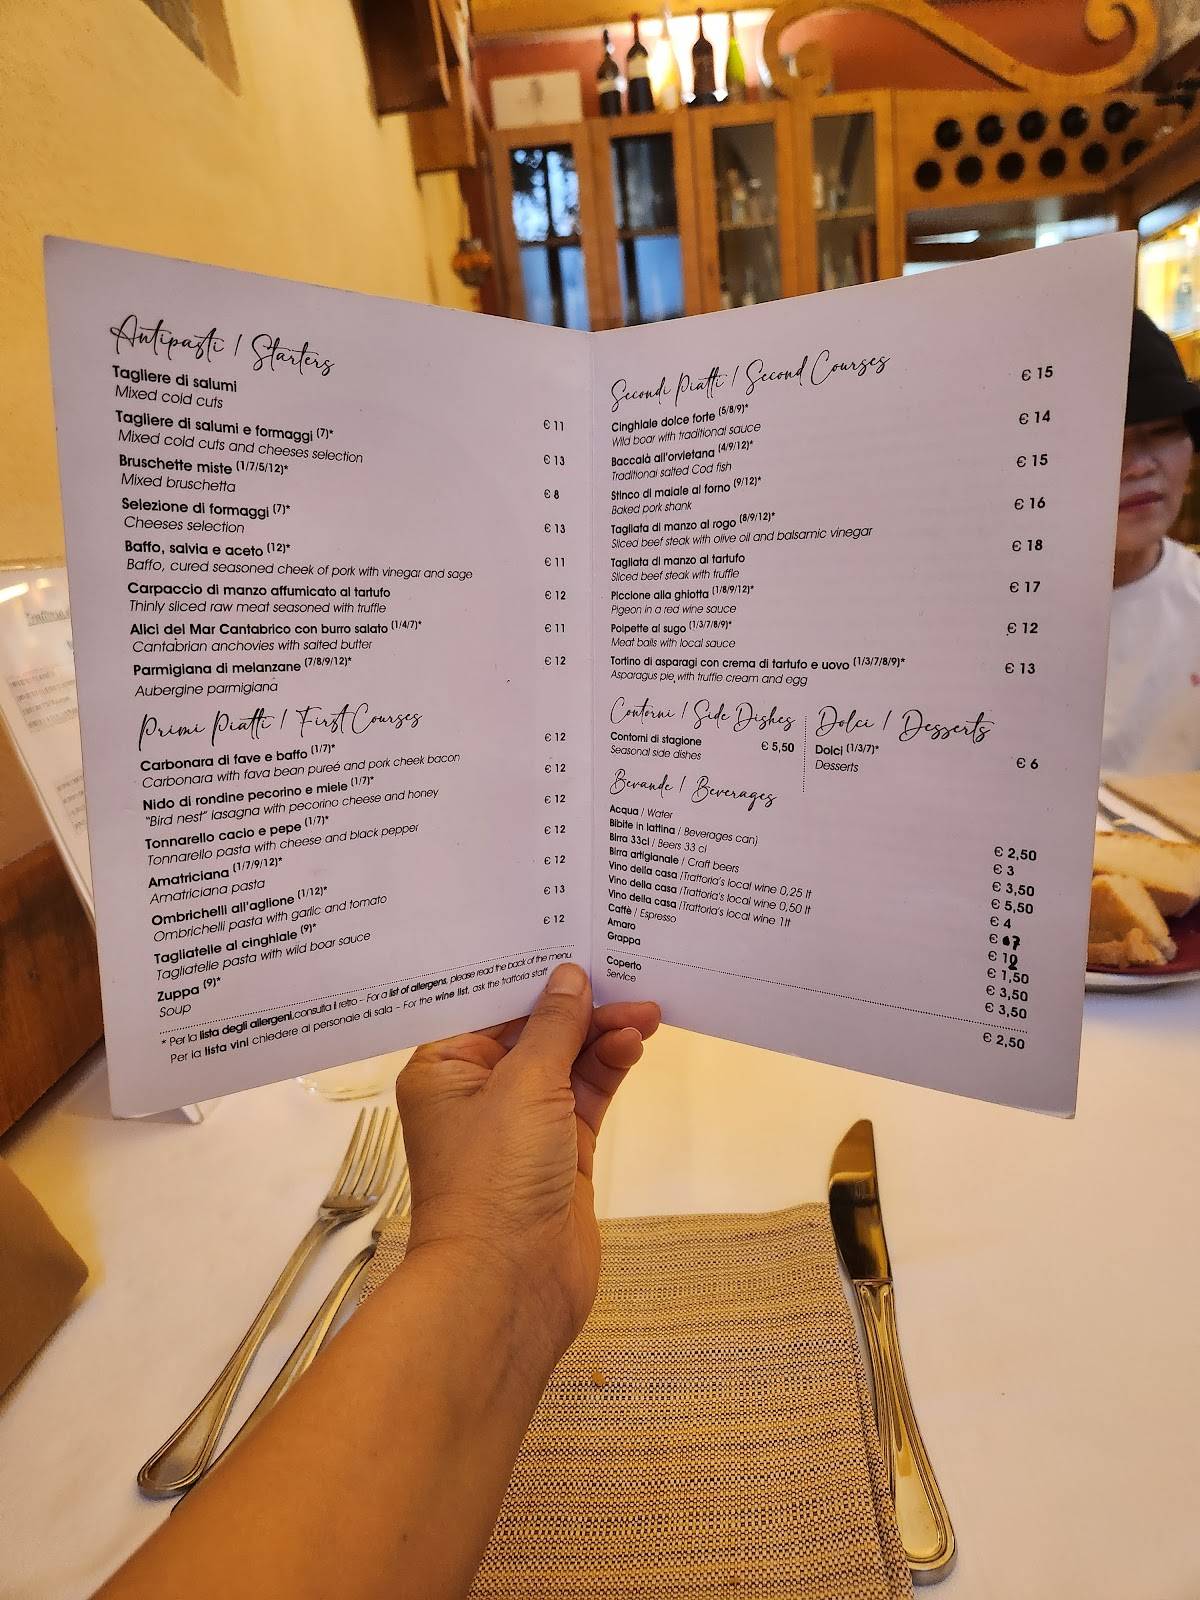 Antipasti / Starters
Tagliere di salumi € 11
Mixed cold cuts
Tagliere di salumi e formaggi (7)* € 13
Mixed cold cuts and cheeses selection
Bruschette miste (1/7/5/12)* € 8
Mixed bruschetta
Selezione di formaggi (7)* € 13
Cheeses selection
Baffo, salvia e aceto (12)* € 11
Baffo, cured seasoned cheek of pork with vinegar and sage
Carpaccio di manzo affumicato al tartufo € 12
Thinly sliced raw meat seasoned with truffle
Alici del Mar Cantabrico con burro salato (1/4/7)* € 11
Cantabrian anchovies with salted butter
Parmigiana di melanzane (7/8/9/12)* € 12
Aubergine parmigiana
Primi Piatti / First Courses
Carbonara di fave e baffo (1/7)* € 12
Carbonara with fava bean pureé and pork cheek bacon
Nido di rondine pecorino e miele (1/7)* € 12
"Bird nest" lasagna with pecorino cheese and honey
Tonnarello cacio e pepe (1/7)* € 12
Tonnarello pasta with cheese and black pepper
Amatriciana (1/7/9/12)* € 12
Amatriciana pasta
Ombrichelli all'aglione (1/12)* € 12
Ombrichelli pasta with garlic and tomato
Tagliatelle al cinghiale (9)* € 13
Tagliatelle pasta with wild boar sauce
Zuppa (9)* € 12
Soup
* Per la lista degli allergeni,consulta il retro - For a list of allergens, please read the back of the menu
Per la lista vini chiedere al personale di sala - For the wine list, ask the trattoria staff
Secondi Piatti / Second Courses
Cinghiale dolce forte (5/8/9)* € 15
Wild boar with traditional sauce
Baccalà all'orvietana (4/9/12)* € 14
Traditional salted Cod fish
Stinco di maiale al forno (9/12)* € 15
Baked pork shank
Tagliata di manzo al rogo (8/9/12)* € 16
Sliced beef steak with olive oil and balsamic vinegar
Tagliata di manzo al tartufo € 18
Sliced beef steak with truffle
Piccione alla ghiotta (1/8/9/12)* € 17
Pigeon in a red wine sauce
Polpette al sugo (1/3/7/8/9)* € 12
Meat balls with local sauce
Tortino di asparagi con crema di tartufo e uovo (1/3/7/8/9)* € 13
Asparagus pie with truffle cream and egg
Contorni / Side Dishes
Contorni di stagione € 5,50
Seasonal side dishes
Dolci / Desserts
Dolci (1/3/7)* € 6
Desserts
Bevande / Beverages
Acqua / Water € 2,50
Bibite in lattina / Beverages can) € 3
Birra 33cl / Beers 33 cl € 3,50
Birra artigianale / Craft beers € 5,50
Vino della casa /Trattoria's local wine 0,25 lt € 4
Vino della casa /Trattoria's local wine 0,50 lt € 7
Vino della casa /Trattoria's local wine 1lt € 12
Caffè / Espresso € 1,50
Amaro € 3,50
Grappa € 3,50
Coperto € 2,50
Service